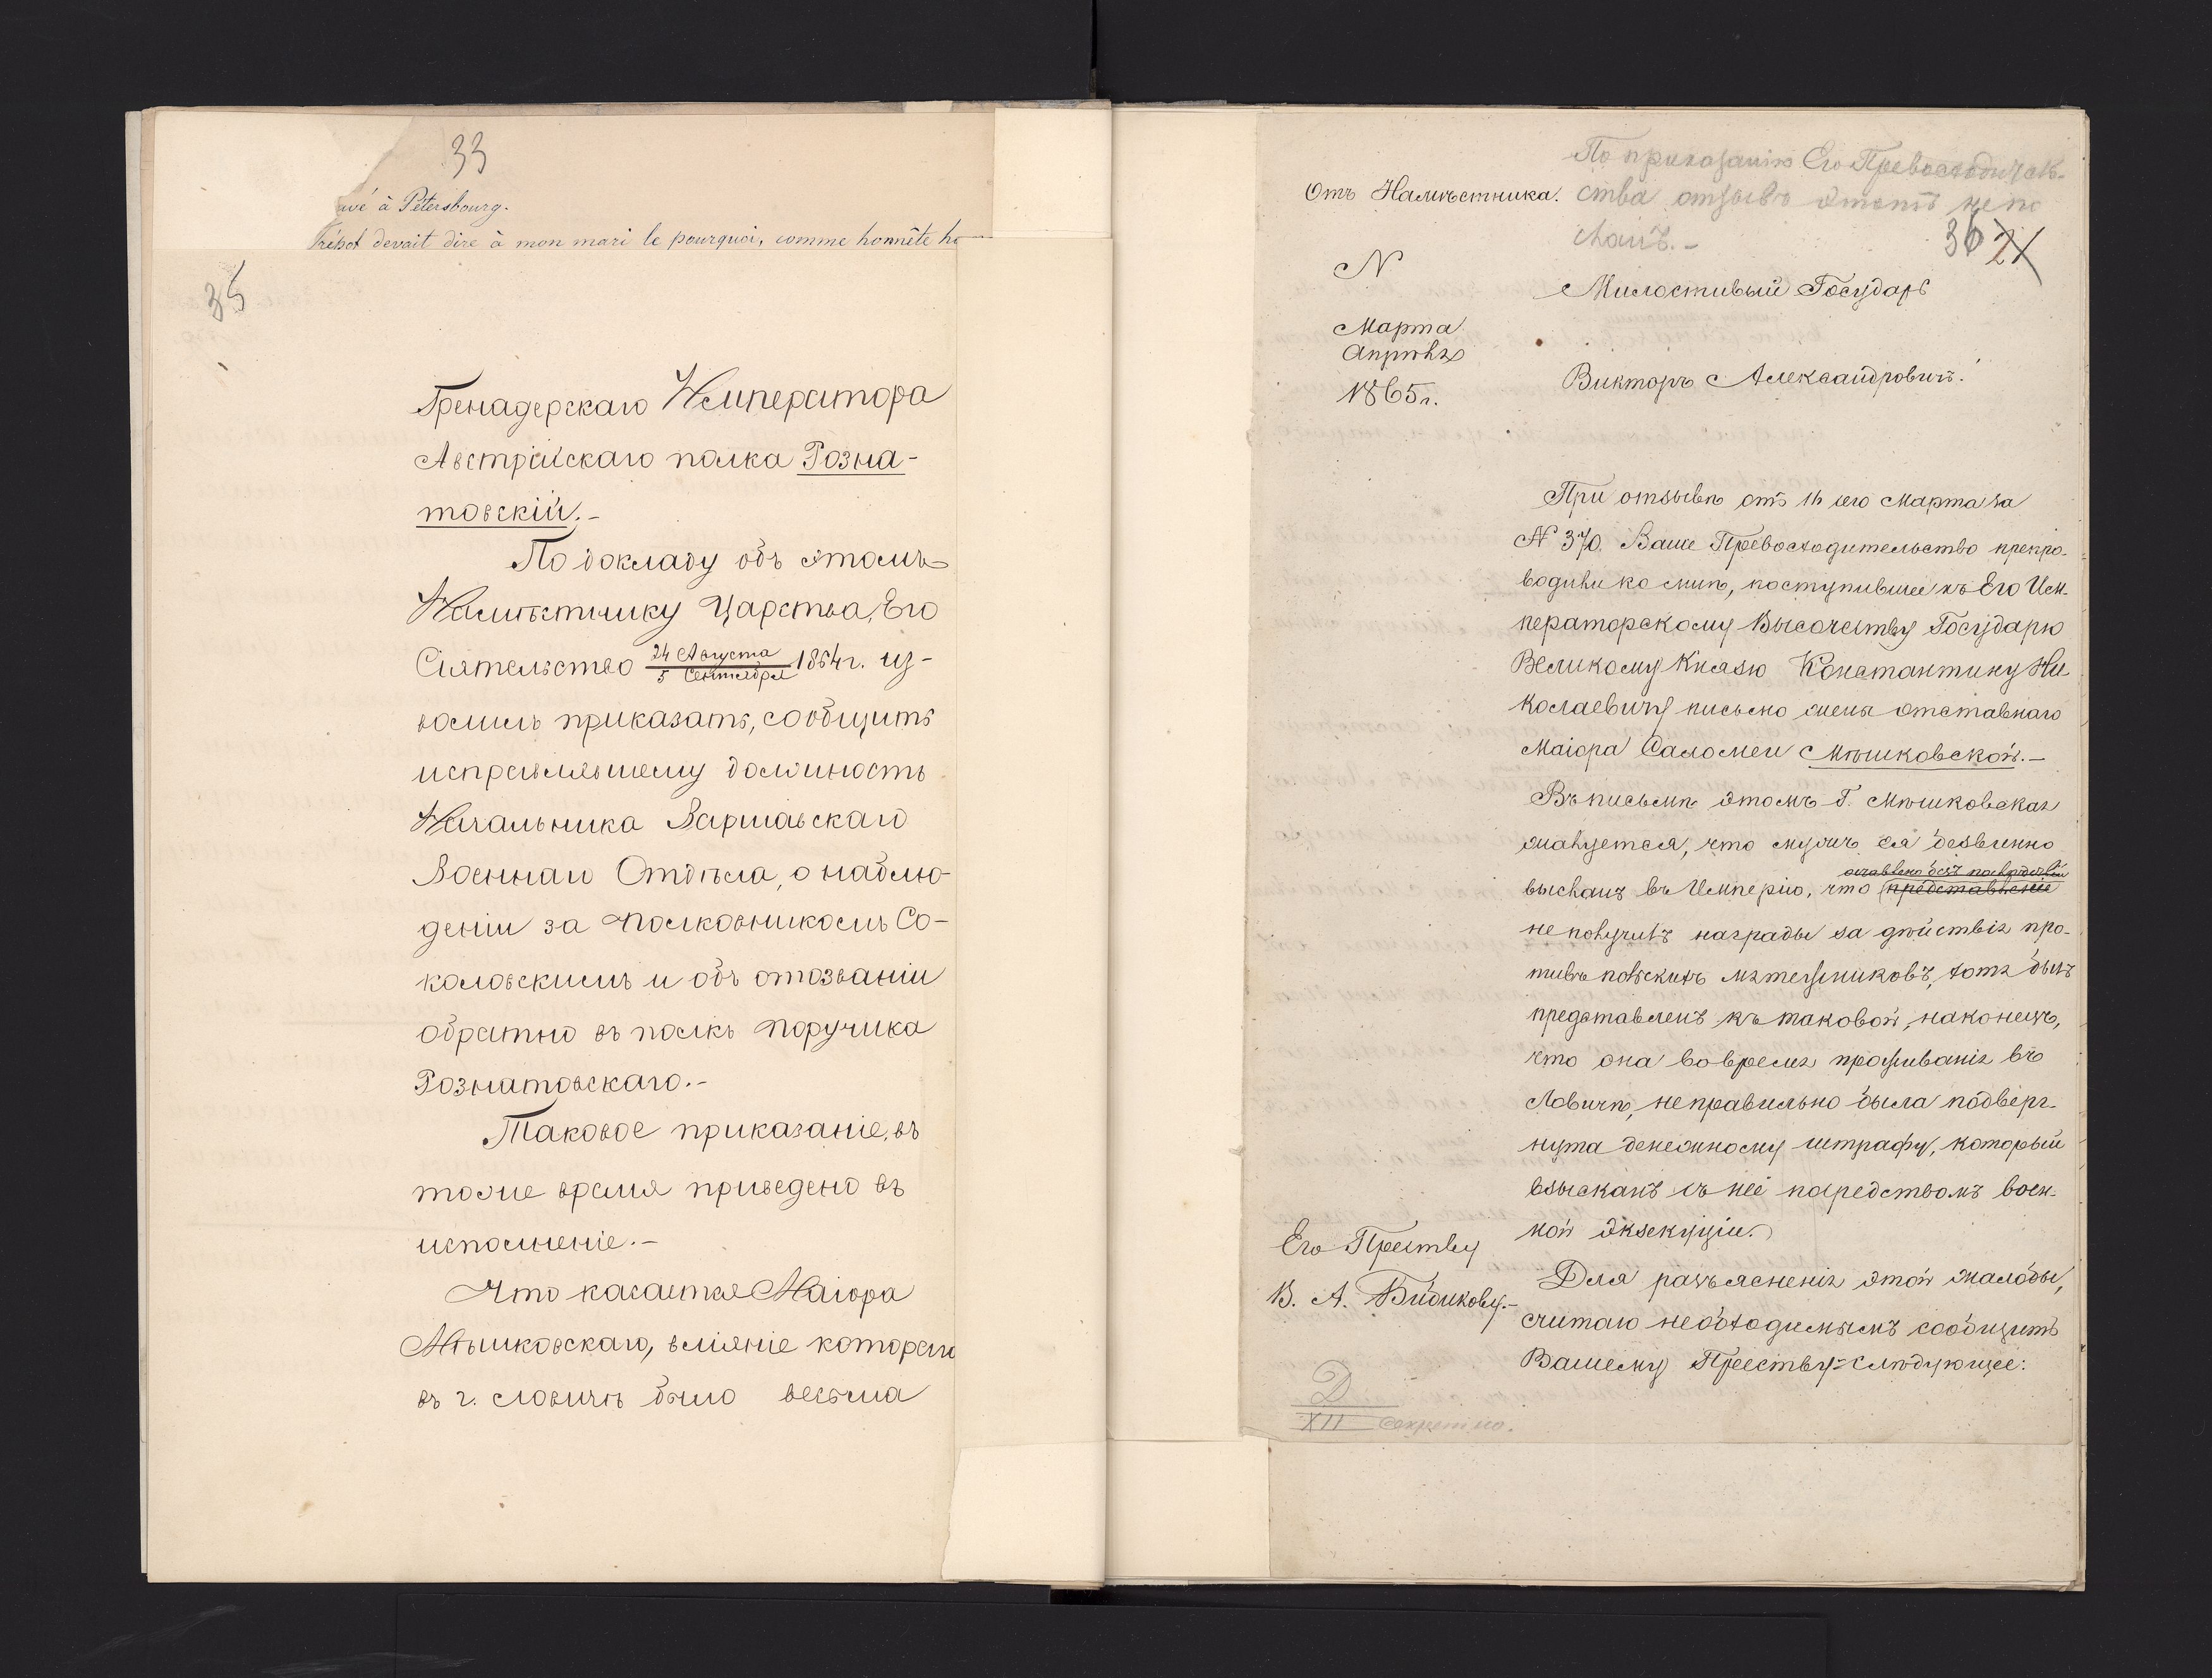 33
à Pétersbourg.
devait dire à mon mari le pourquoi, comme honnête
35
Гренадерскаго Императора
Австрійскаго полка Розна-
товскій.-
По докладу объ этомъ
Намѣстнику Царства, Его
Сіятельство 24 Августа / 5 Сентября 1864 г. из-
волилъ приказать, сообщить
исправлявшему должность
Начальника Варшавскаго
Военнаго Отдѣла, о наблю-
деніи за Полковникомъ Со-
коловскимъ и объ отозваніи
обратно въ полкъ Поручика
Рознатовскаго.-
Таковое приказаніе, въ
тоже время приведено въ
исполненіе.-
Что касается Маіора
Мѣшковскаго, вліяніе котораго
въ г. Ловичѣ было весьма
По приказанію Его Превосходитель-
ства отзывъ этотъ не по
сланъ.-
Отъ Намѣстника.
36 21
N
Марта
Апрѣля
1865 г.
Милостивый Государь
Викторъ Александровичъ!
При отзывѣ отъ 16 сего Марта за
N 370. Ваше Превосходительство препро-
водили ко мнѣ, поступившее къ Его Им-
ператорскому Высочеству Государю
Великому Князю Константину Ни-
колаевичу письмо жены отставнаго
Маіора Саломеи Мѣшковской.-
Въ письмѣ этомъ Г. Мѣшковская
жалуется, что мужъ ея безвинно
высланъ въ Имперію, что представленіе
оставлено безъ послѣдствій
не получилъ награды за дѣйствія про-
тивъ польскихъ мятежниковъ, хотя былъ
представленъ къ таковой, наконецъ,
что она во время проживанія въ
Ловичѣ, неправильно была подверг-
нута денежному штрафу, который
взысканъ съ неё посредствомъ воен-
ной экзекуціи.
Для разъясненія этой жалобы,
считаю необходимымъ сообщить
Вашему Прест­ву слѣдующее:
Его Прест­ву
В. А. Бибикову.-
D
XII Секретно.